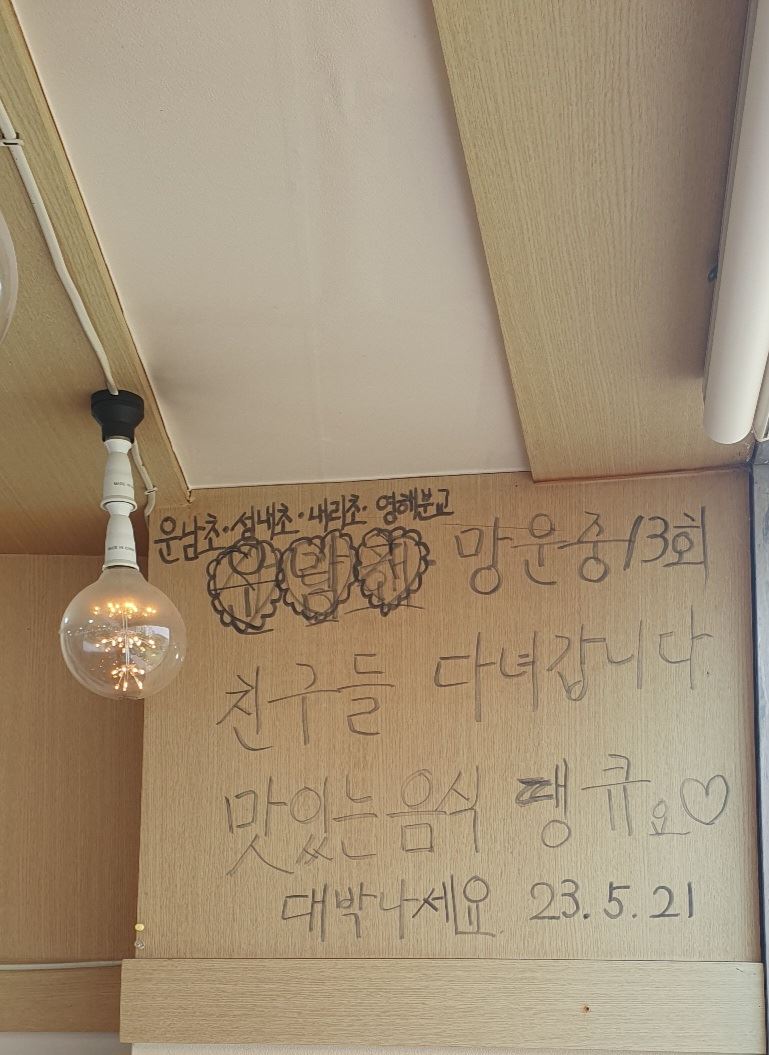 운남초·섬내초·내리초·영해분교
유람재 망운중13회
친구들 다녀갑니다
맛있는음식 땡큐요♡
대박나세요 23.5.21